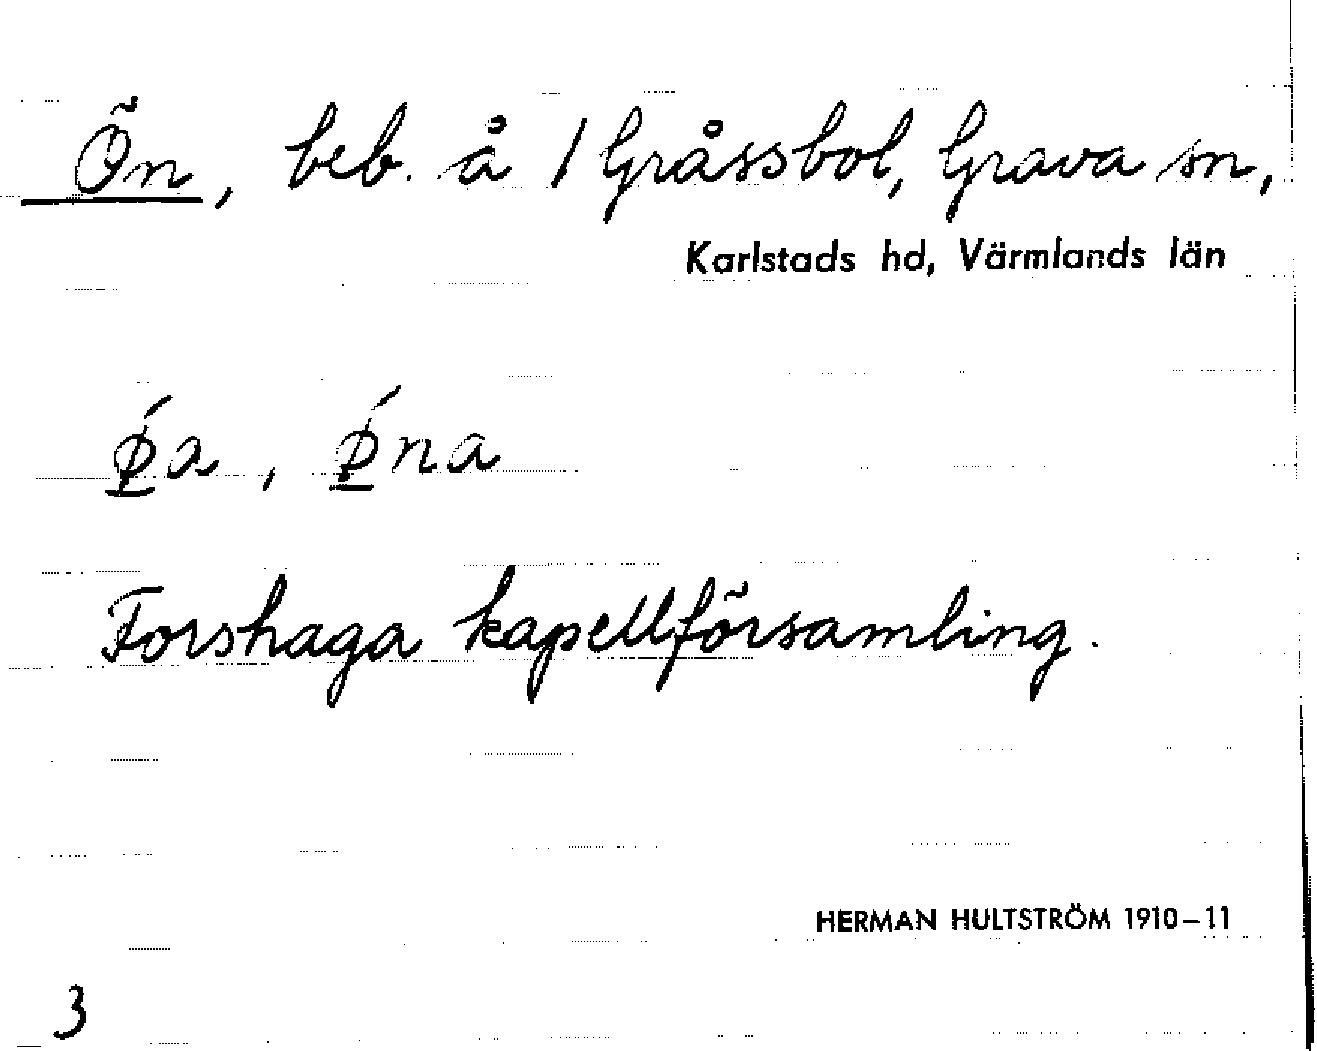 Ön, beb. å 1 Gråssbol, Grava sn,
Karlstads hd, Värmlands län
ǿa, ǿna
Forshaga kapellförsamling.
HERMAN HULTSTRÖM 1910–11
3